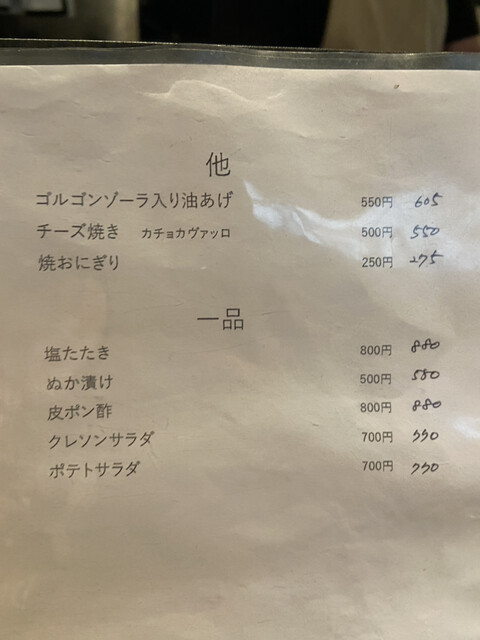 他
ゴルゴンゾーラ入り油あげ 550円 605
チーズ焼き カチョカヴァッロ 500円 550
焼おにぎり 250円 275
一品
塩たたき 800円 880
ぬか漬け 500円 550
皮ポン酢 800円 880
クレソンサラダ 700円 770
ポテトサラダ 700円 770